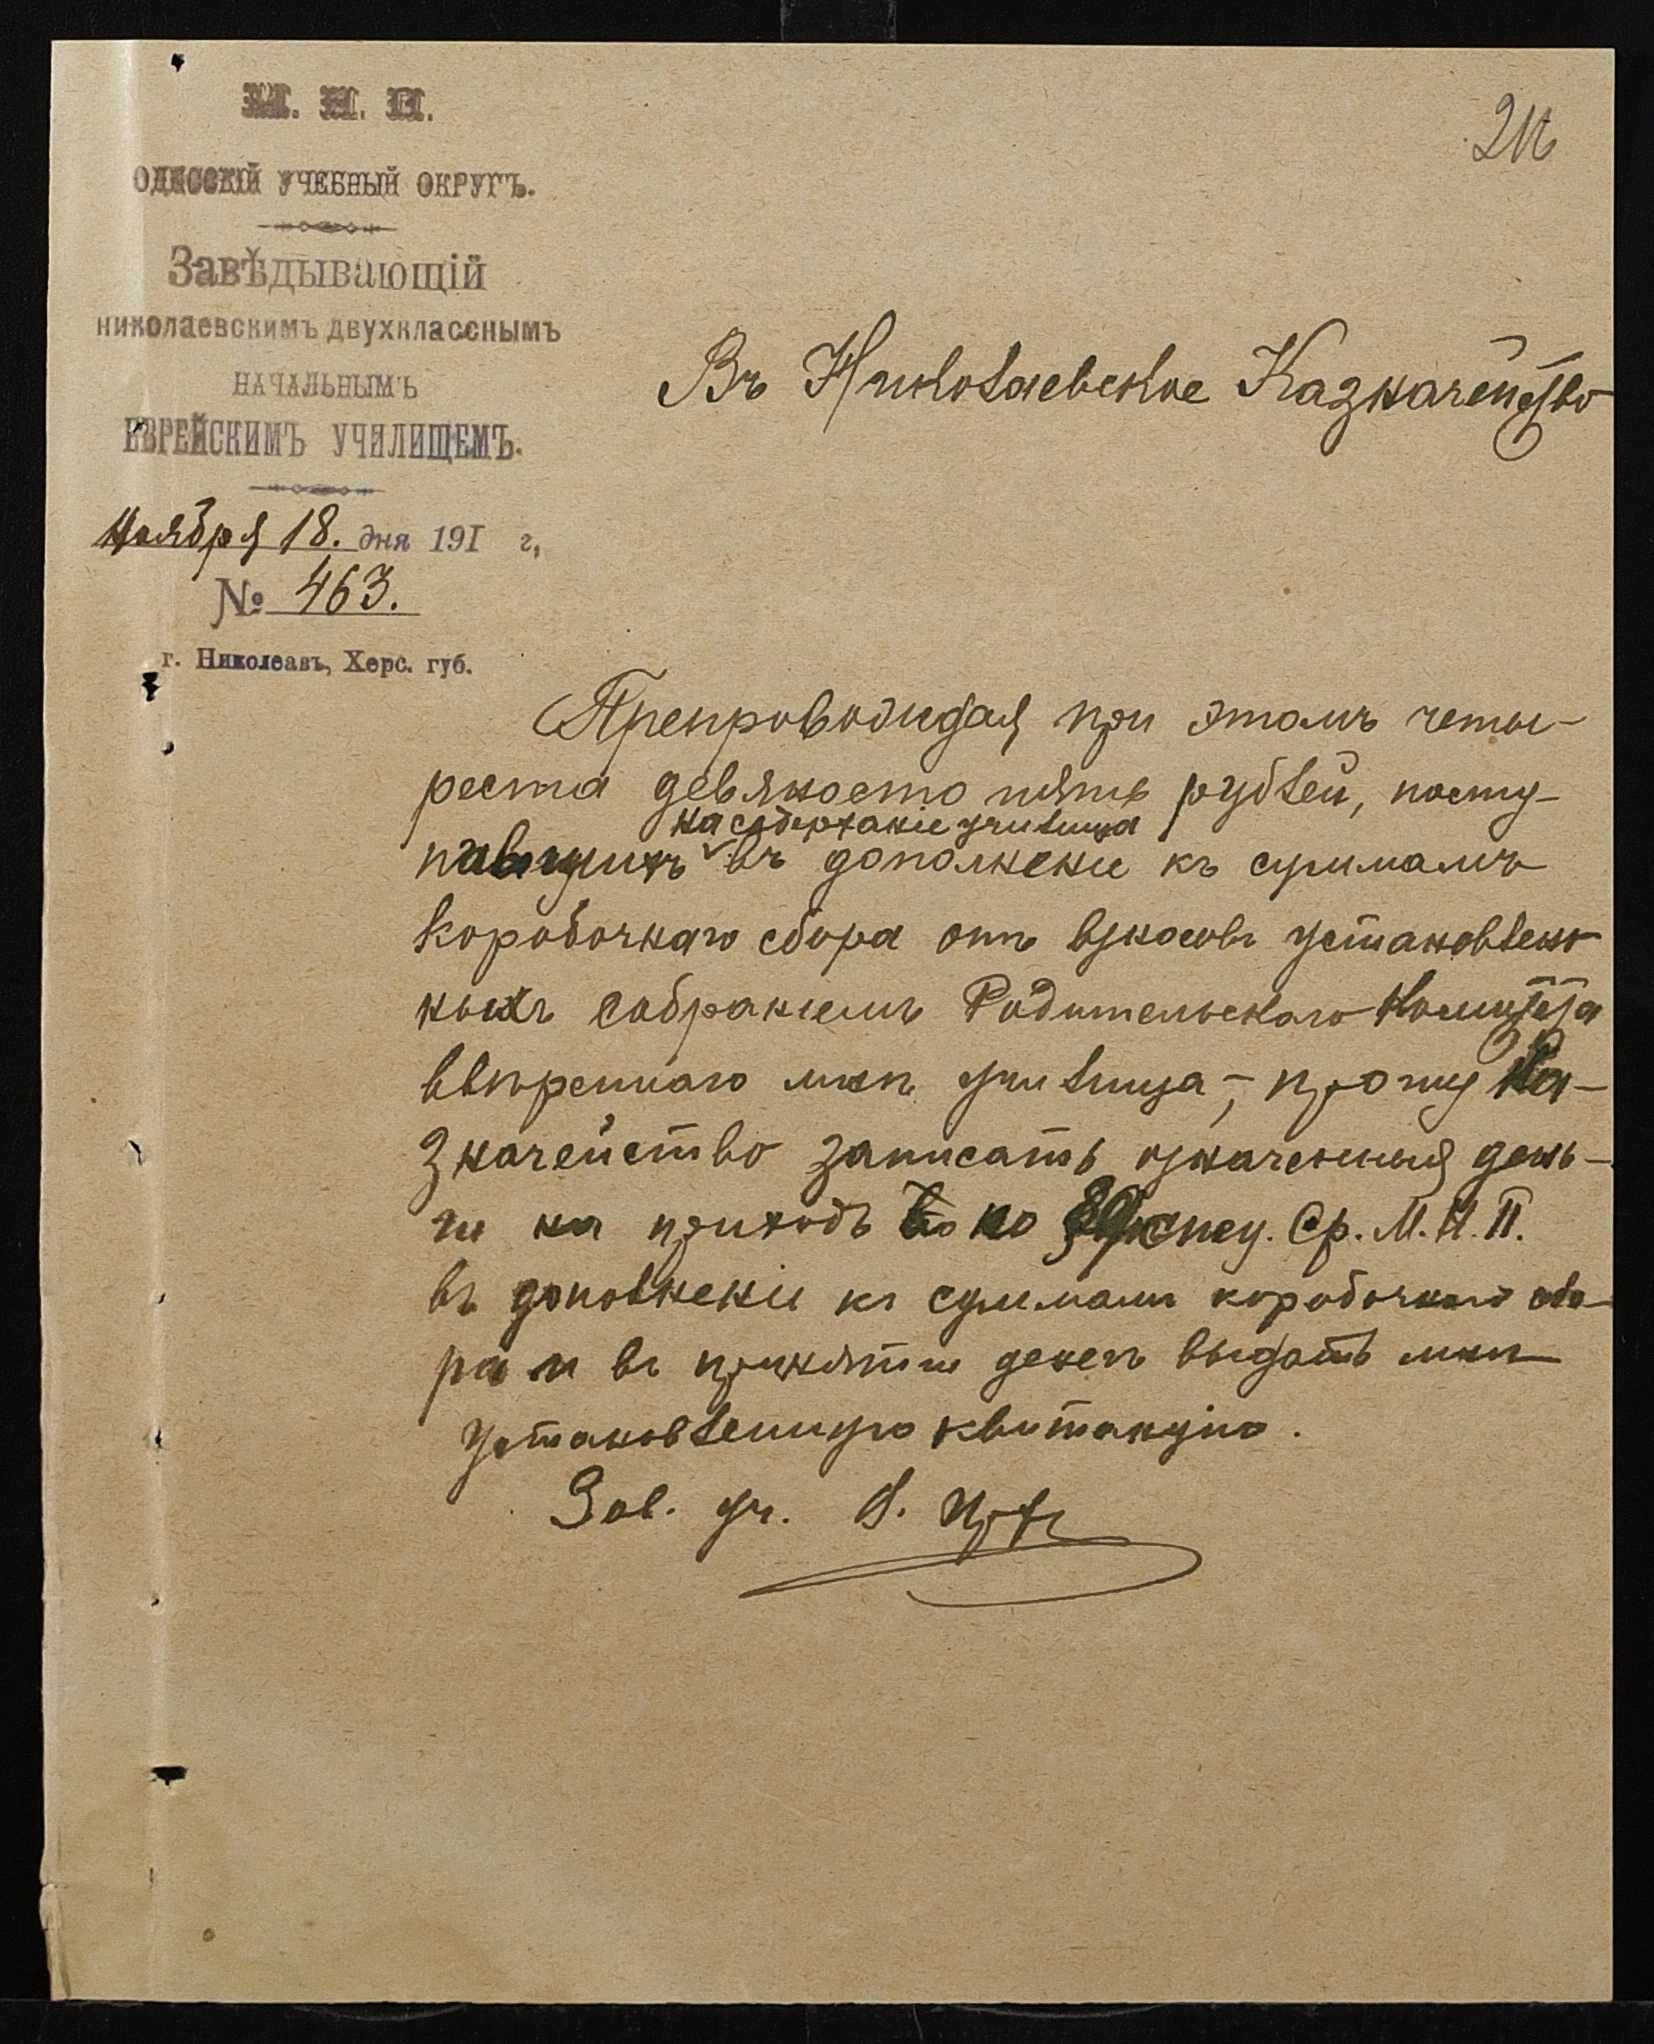 М. Н. П.
ОДЕССКІЙ УЧЕБНЫЙ ОКРУГЪ.
Завѣдывающій
николаевскимъ двухкласснымъ
НАЧАЛЬНЫМЪ
ЕВРЕЙСКИМЪ УЧИЛИЩЕМЪ.
Ноября 18. дня 191 г.,
№ 463.
г. Николеавъ, Херс. губ.
Въ Николаевское Казначейство
Препровождая при этомъ четы-
реста девяносто пять рублей, посту-
на содержаніе училища
пившихъ въ дополненіе къ суммамъ
коробочнаго сбора отъ взносовъ установлен
ныхъ собраніемъ Родительскаго Комитета
ввѣреннаго мнѣ училища, - прошу Ка-
значейство записать означенныя день-
ги на приходъ по спец. Ср. М. Н. П.
въ дополненіи къ суммамъ коробочнаго сбо-
ра и въ принятіи денегъ выдать мнѣ
установленную квитанцію.
Зав. уч.